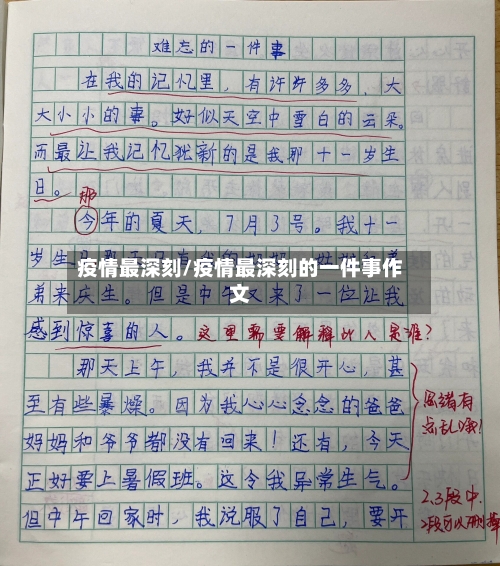 难忘的一件事
在我的记忆里，有许许多多，大
大小小的事。好似天空中雪白的云朵。
而最让我记忆犹新的是我那十一岁生
日。
那
今年的夏天，7月3号。我十一
岁生
疫情最深刻/疫情最深刻的一件事作
文
弟来庆生。但是中午又来了一位让我
感到惊喜的人。这里需要解释此人是谁?
那天上午，我并不是很开心，甚
至有些暴燥。因为我心心念念的爸爸
思绪有
点乱哦!
妈妈和爷爷都没有回来！还有，今天
正好要上暑假班。这令我异常生气。
2.3段中.
但中午回家时，我说服了自己，要开
2段可以删掉